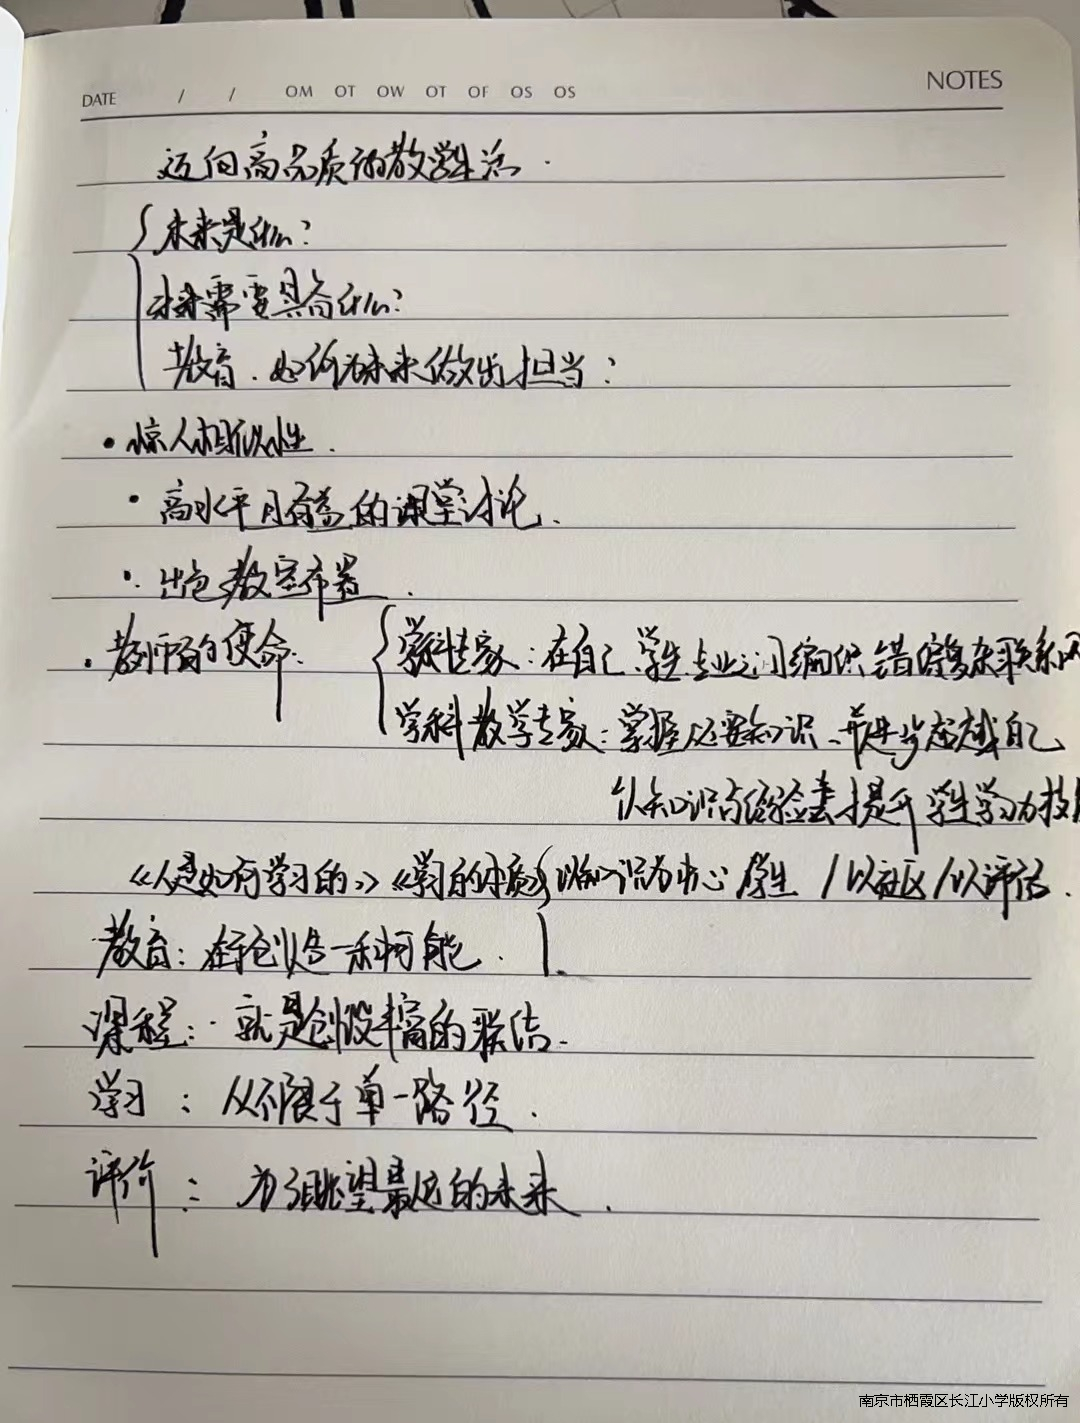 DATE / / OM OT OW OT OF OS OS NOTES
迈向高品质的教学生活.
未来是什么?
将需要具备什么?
教育.如何为未来做出担当:
·惊人相似性.
·高水平有益的课堂讨论.
·出色教室布置.
·教师的使命: 学科专家:在自己、学生、专业之间编织错综复杂联系网
学科教学专家:掌握必要知识、并进步超越自己
从知识与经验去提升学生学习力技
《人是如何学习的》《学习的本质》以知识为中心 学生 / 以社区 / 以评估.
教育:在于创造一种可能.
课程:就是创设丰富的联结.
学习:从不限于单一路径.
评价:为了眺望最远的未来.
南京市栖霞区长江小学版权所有